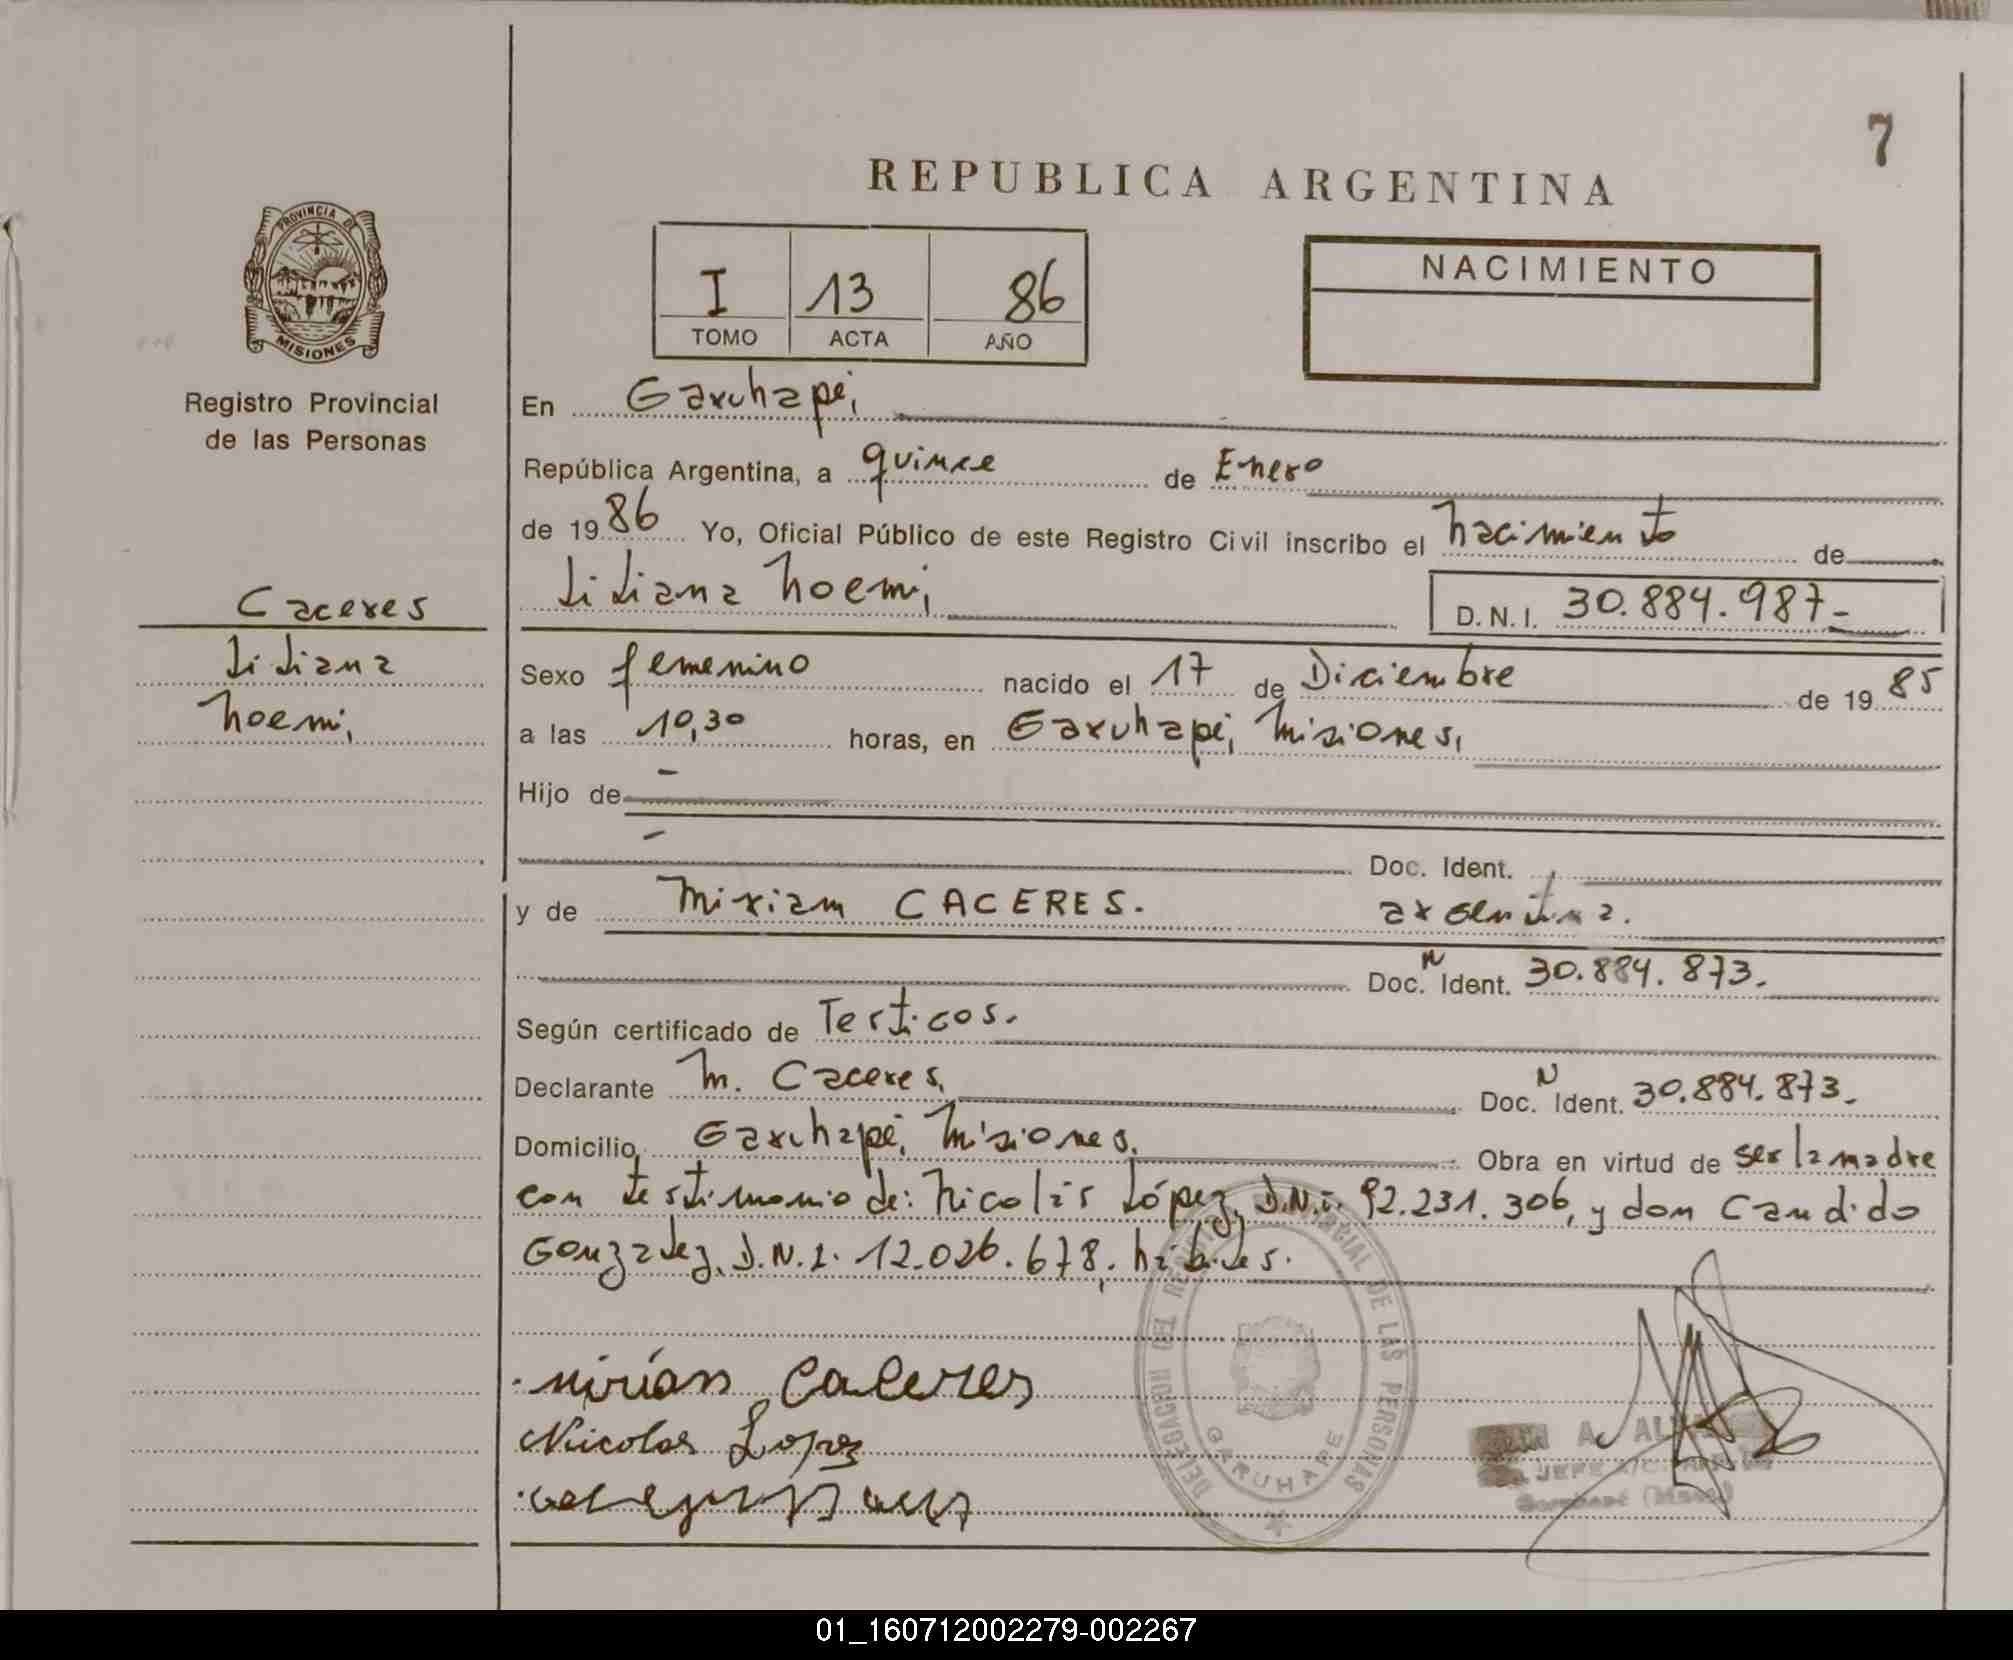 7
REPUBLICA ARGENTINA
PROVINCIA DE
MISIONES
Registro Provincial
de las Personas
I 13 86
TOMO ACTA AÑO
NACIMIENTO
En Garuhapé,
República Argentina, a quince de Enero
de 1986 Yo, Oficial Público de este Registro Civil inscribo el nacimiento de
Liliana Noemi, D.N.I. 30.884.987-
Caceres
Liliana
Noemi,
Sexo femenino nacido el 17 de Diciembre de 1985
a las 10,30 horas, en Garuhapé, Misiones,
Hijo de -
- Doc. Ident.
y de Miriam CACERES. argentina.
Doc. N Ident. 30.884.873.
Según certificado de Testigos.
Declarante M. Caceres, Doc. N Ident. 30.884.873.
Domicilio Garuhapé, Misiones. Obra en virtud de ser la madre
con testimonio de: Nicolás López, D.N.i. 92.231.306, y don Candido
Gonzalez, D.N.I. 12.026.678, hábiles.
mirian Caceres
Nicolas Lopez
DELEGACION DEL REGISTRO PROVINCIAL DE LAS PERSONAS
GARUHAPE
A.
JEFE
Garuhapé (Mnes)
01_160712002279-002267